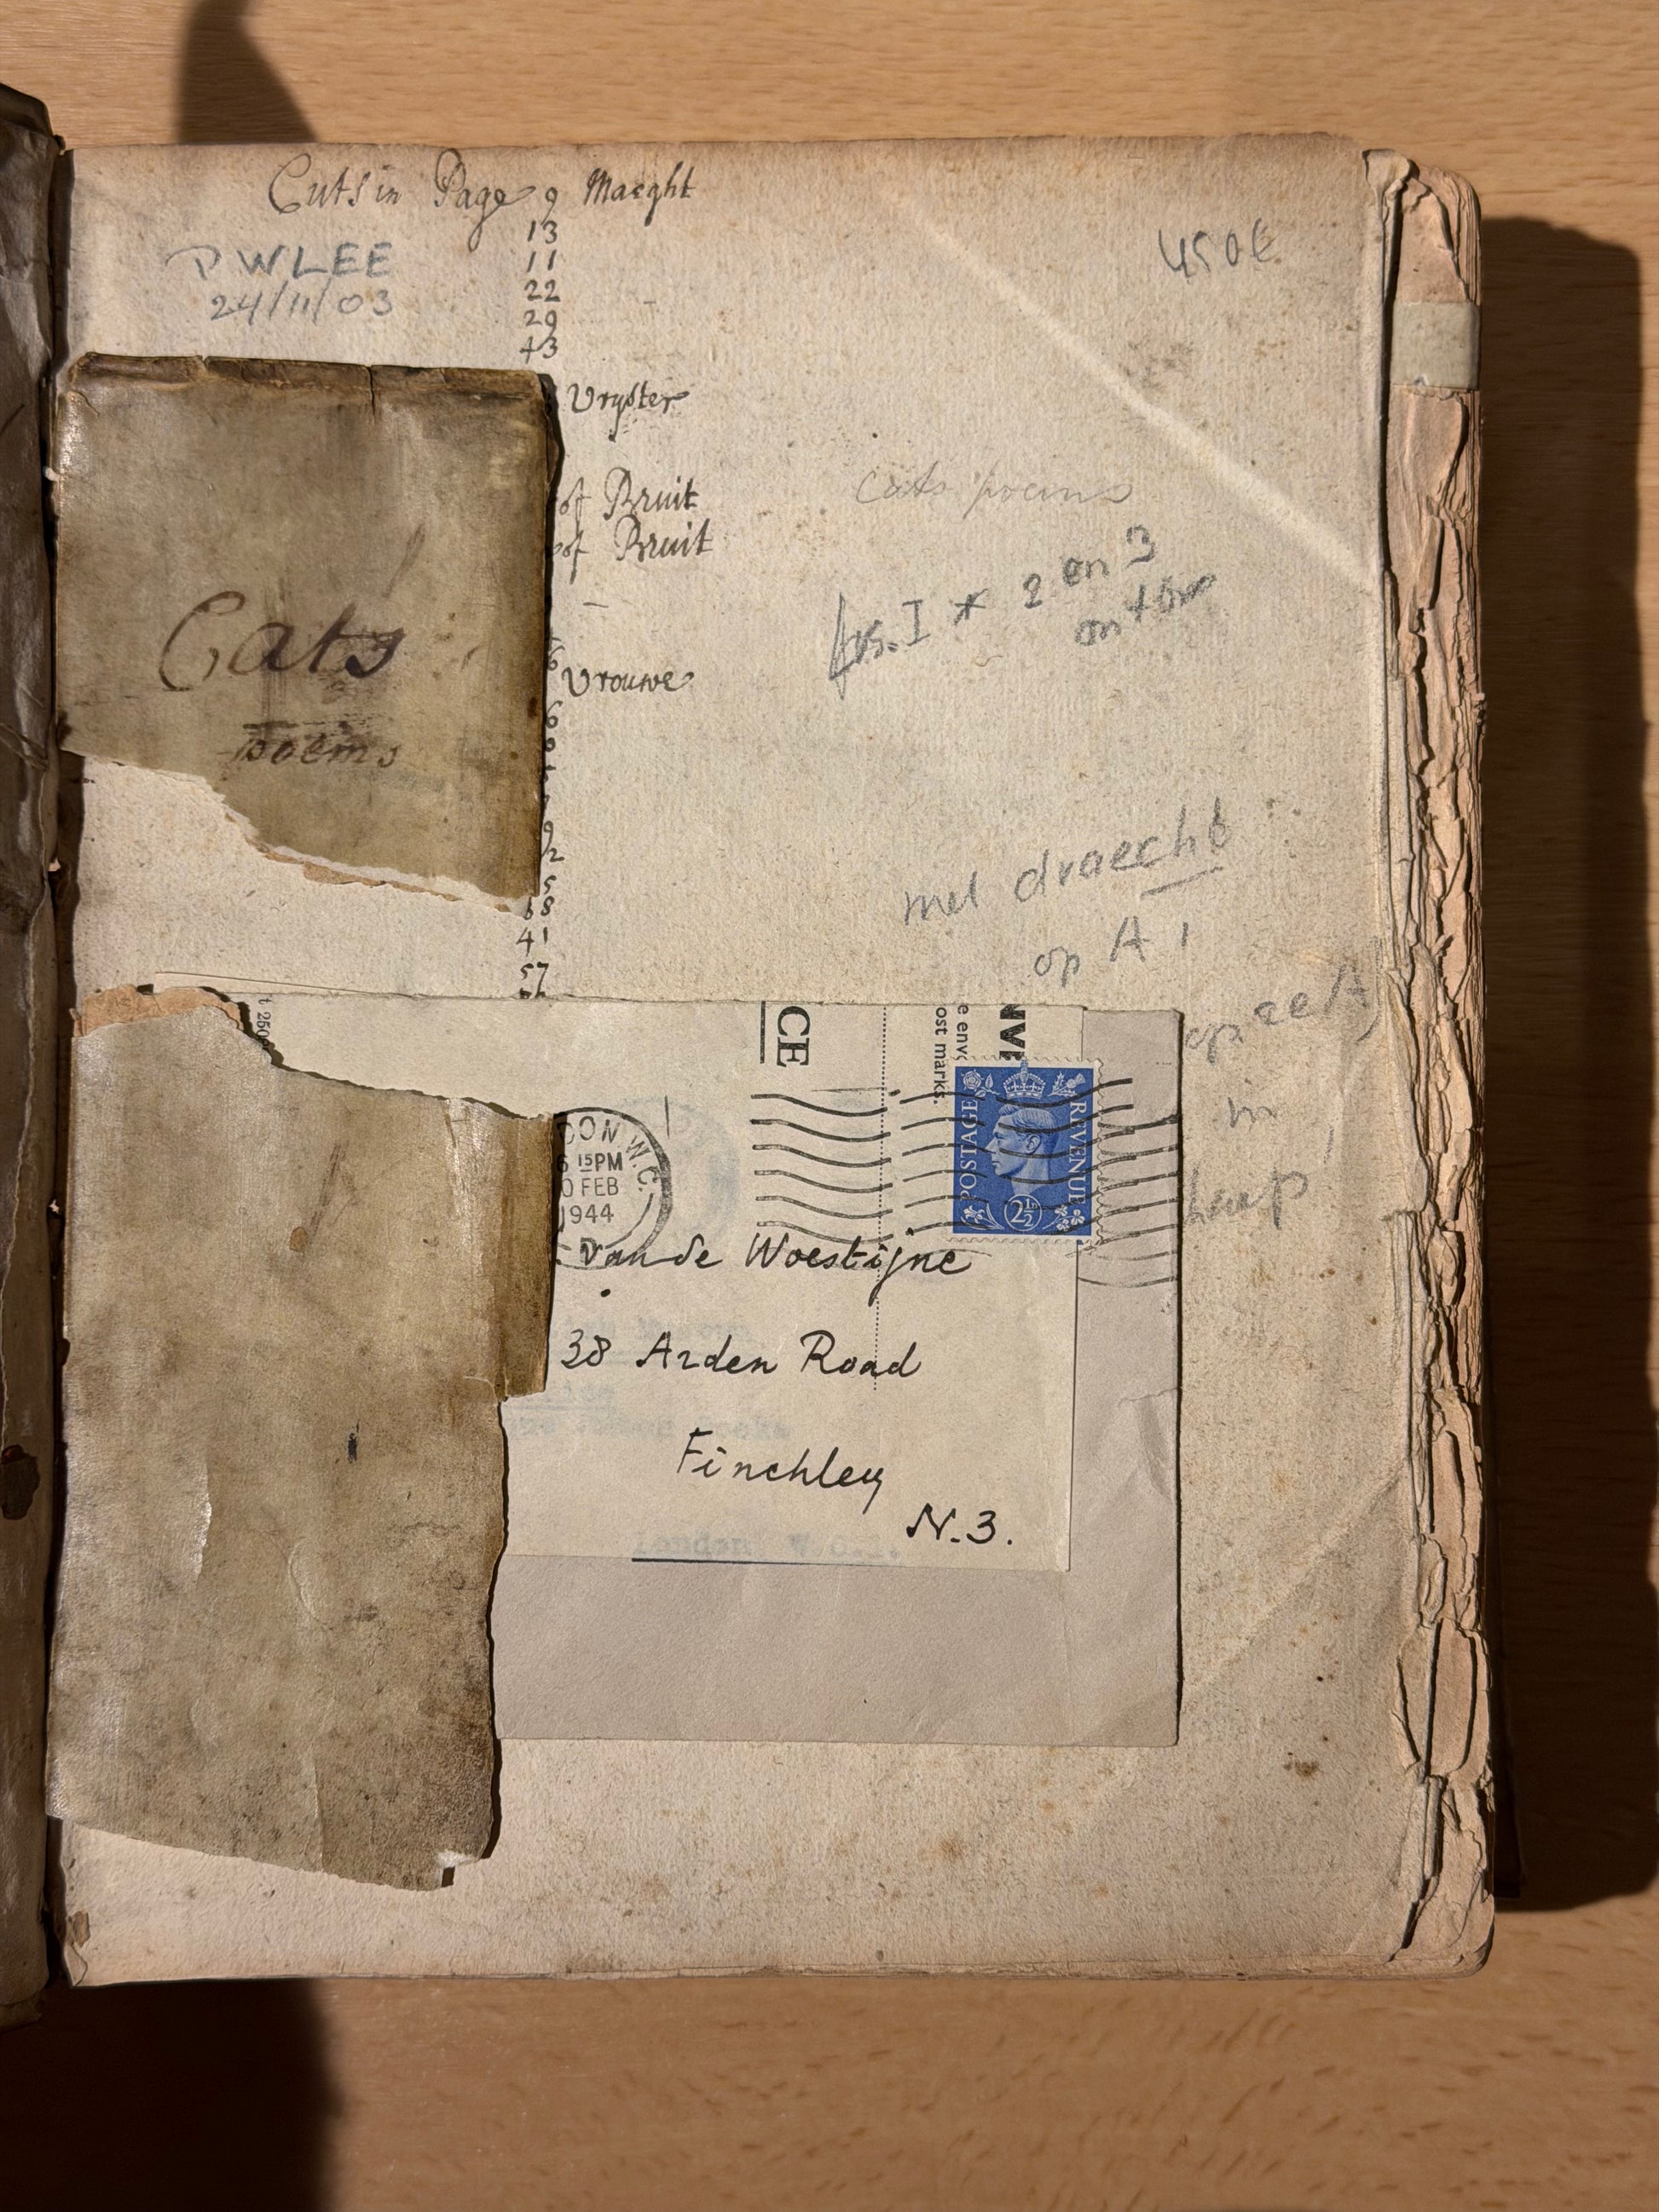 Cuts in Page 9 Maeght
13
11
22
29
43
P W LEE
24/11/03
450€
Vryster
of Bruit
of Bruit
Cats poems
Cats
poems
2 en 3
Vrouwe
6
9
2
5
68
41
57
met draecht
op A 1
op
in
t 250
CE
NVE
e env
ost marks.
DON W.C.
15PM
0 FEB
1944
D
POSTAGE
REVENUE
2½
van de Woestijne
38 Arden Road
Finchley
N.3.
London W.C.1.